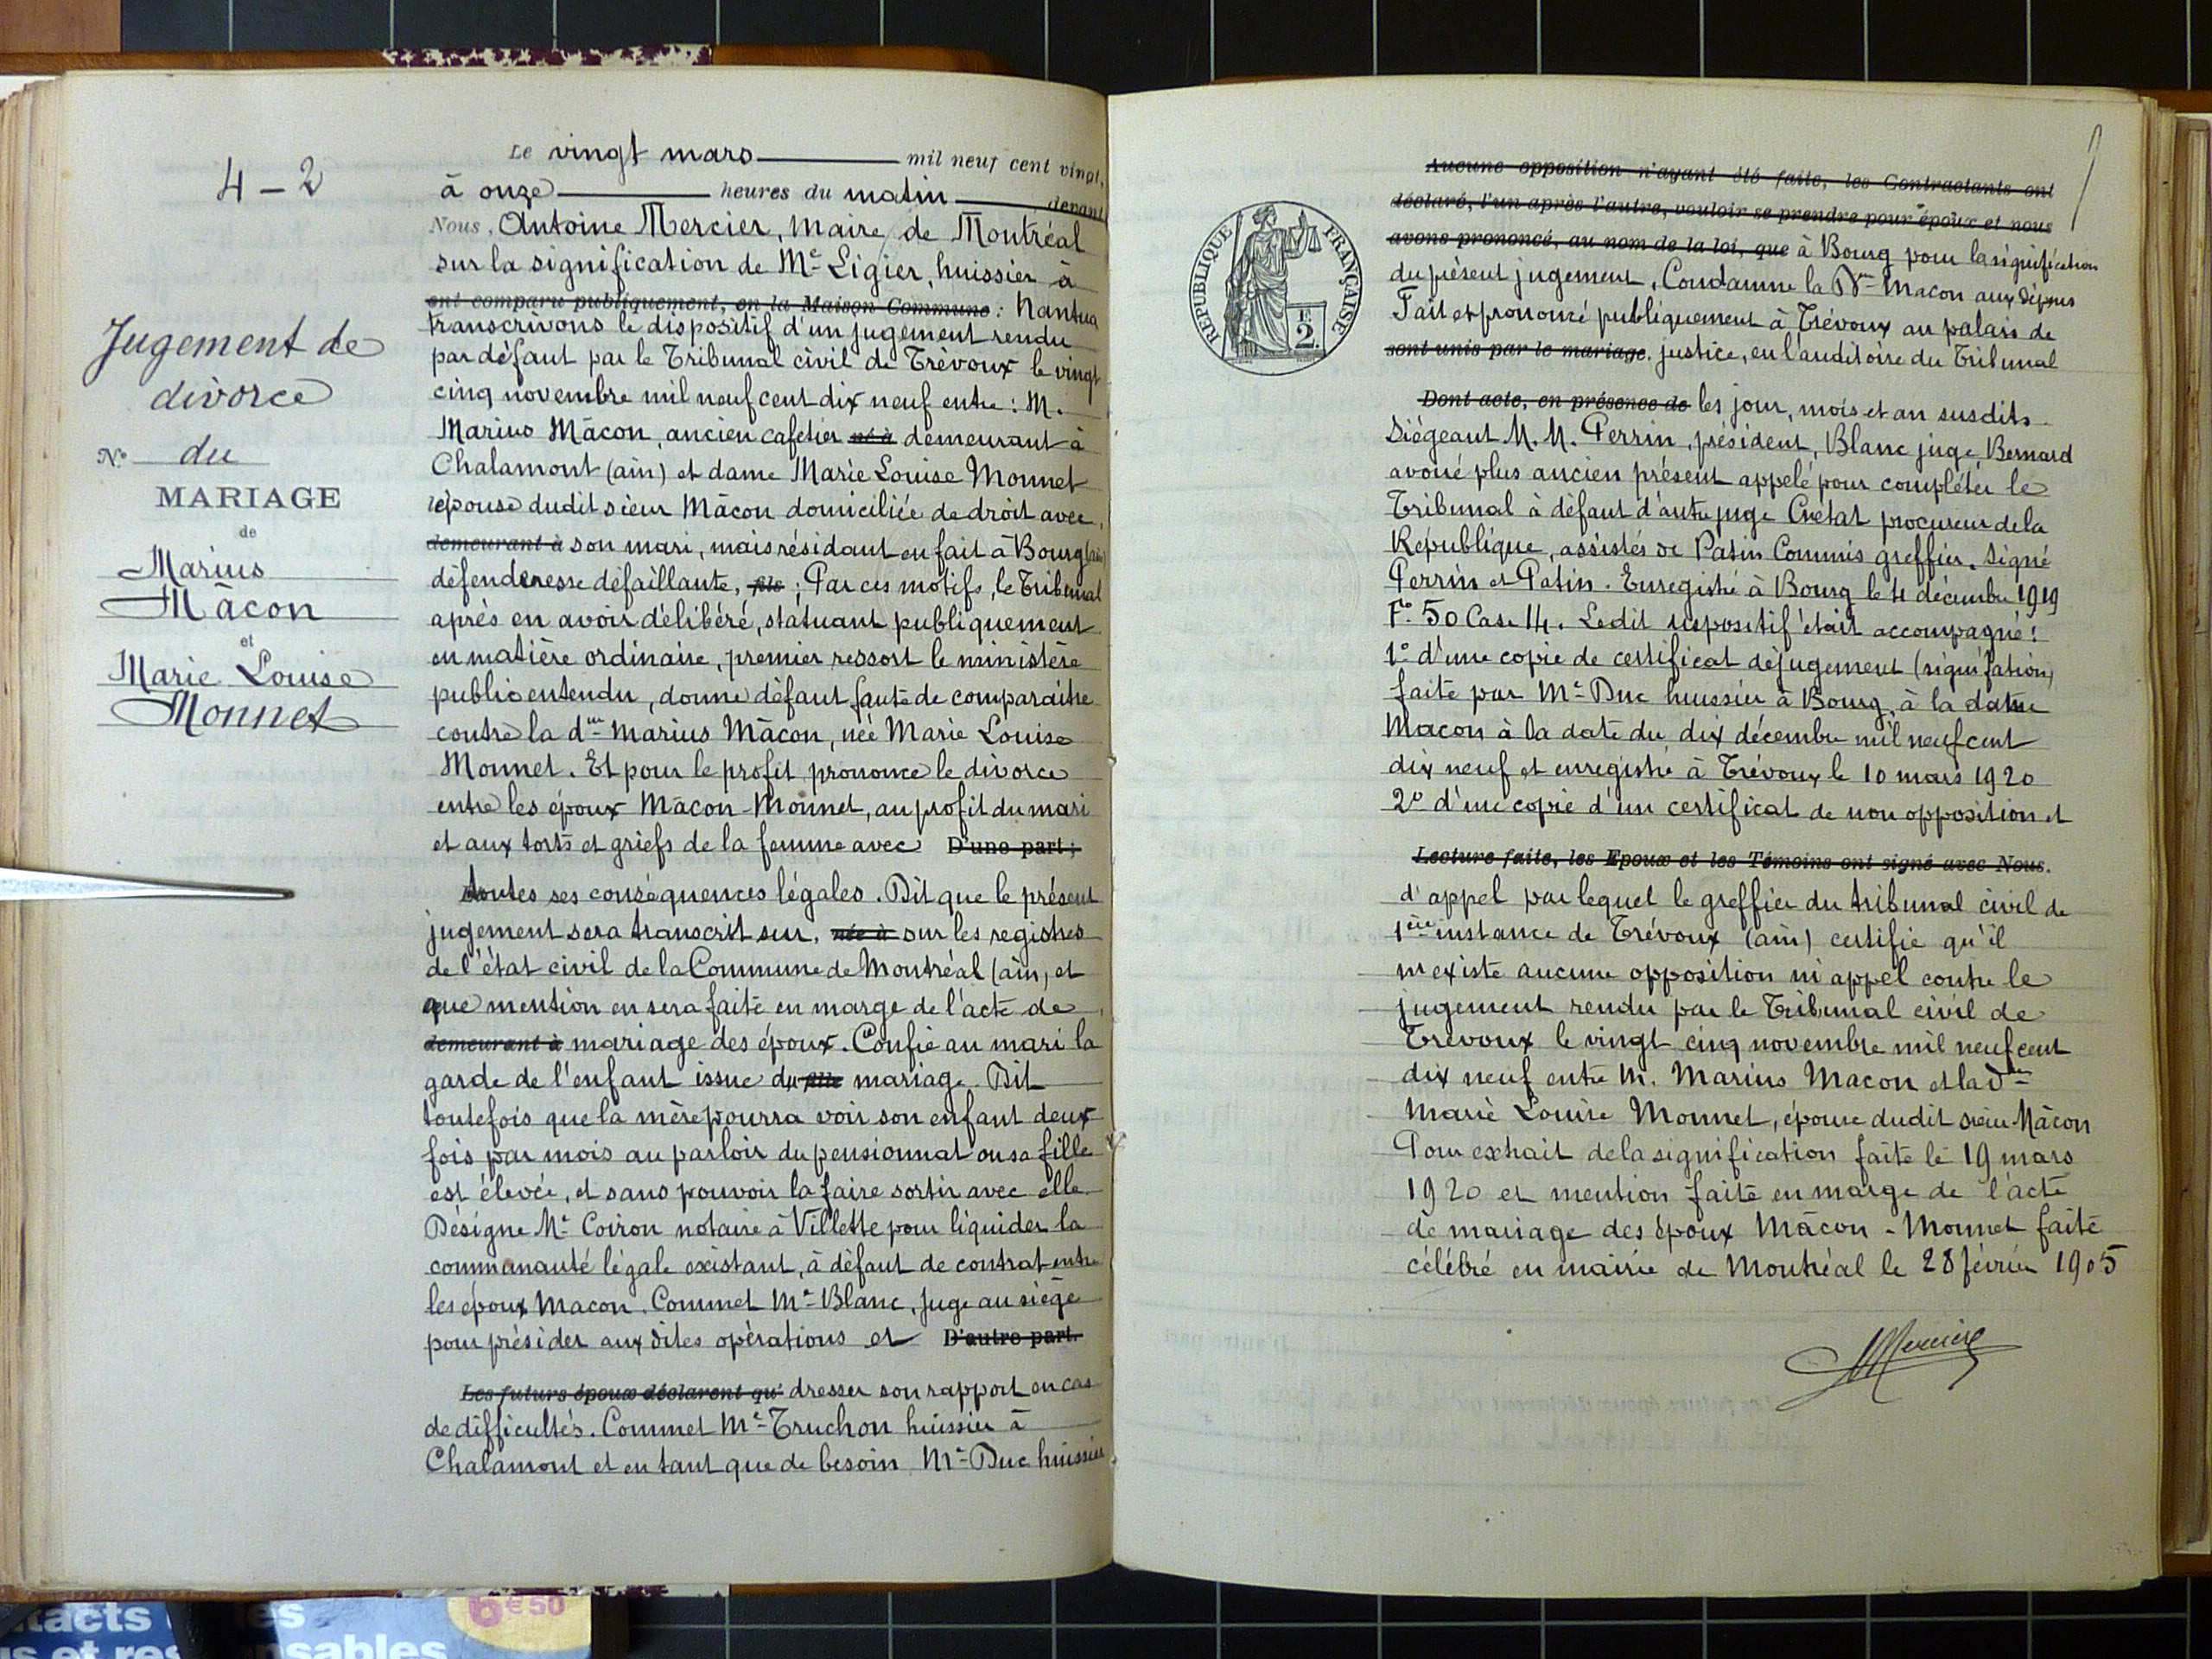 4 – 2
Jugement de
divorce
N° du
MARIAGE
de
Marius
Mâcon
et
Marie Louise
Monnet
Le vingt mars mil neuf cent vingt,
à onze heures du matin devant
Nous, Antoine Mercier, Maire de Montréal
sur la signification de Me Ligier, huissier à
ont comparu publiquement, en la Maison Commune : Nantua
transcrivons le dispositif d'un jugement rendu
par défaut par le Tribunal civil de Trévoux le vingt
cinq novembre mil neuf cent dix neuf entre : M.
Marius Mâcon, ancien cafetier né à demeurant à
Chalamont (ain) et dame Marie Louise Monnet
épouse dudit sieur Mâcon domiciliée de droit avec
demeurant à son mari, mais résidant en fait à Bourg (ain)
défenderesse défaillante, fils ; Par ces motifs, le Tribunal
après en avoir délibéré, statuant publiquement
en matière ordinaire, premier ressort le ministère
public entendu, donne défaut faute de comparaître
contre la dme Marius Mâcon, née Marie Louise
Monnet. Et pour le profit prononce le divorce
entre les époux Mâcon-Monnet, au profit du mari
et aux torts et griefs de la femme avec D'une part ;
toutes ses conséquences légales. Dit que le présent
jugement sera transcrit sur, née à sur les registres
de l'état civil de la Commune de Montréal (ain) et
que mention en sera faite en marge de l'acte de
demeurant à mariage des époux. Confie au mari la
garde de l'enfant issue du fille mariage. Dit
toutefois que la mère pourra voir son enfant deux
fois par mois au parloir du pensionnat ou sa fille
est élevée, et sans pouvoir la faire sortir avec elle.
Désigne Me Coiron notaire à Villette pour liquider la
communauté légale existant, à défaut de contrat entre
les époux Macon. Commet Me Blanc, Juge au siège
pour présider aux dites opérations et D'autre part.
Les futurs époux déclarent qu' dresser son rapport en cas
de difficultés. Commet Me Truchon huissier à
Chalamont et en tant que de besoin Me Duc huissier
RÉPUBLIQUE FRANÇAISE
2
Aucune opposition n'ayant été faite, les Contractants ont
déclaré, l'un après l'autre, vouloir se prendre pour époux et nous
avons prononcé, au nom de la loi, que à Bourg pour la signification
du présent jugement. Condamne la Dme Macon aux dépens
Fait et prononcé publiquement à Trévoux au palais de
sont unis par le mariage. justice, en l'auditoire du Tribunal
Dont acte, en présence de les jour, mois et an susdits
Siégeant M. M. Perrin, président, Blanc juge, Bernard
avoué plus ancien présent appelé pour compléter le
Tribunal à défaut d'autre juge Crétat procureur de la
République, assistés de Patin Commis greffier. Signé
Perrin et Patin. Enregistré à Bourg le 4 décembre 1919
Fo 50 Case 14. Ledit dispositif était accompagné :
1° d'une copie de certificat de jugement (signification)
faite par Me Duc huissier à Bourg, à la dame
Macon à la date du dix décembre mil neuf cent
dix neuf et enregistré à Trévoux le 10 mars 1920
2° d'une copie d'un certificat de non opposition et
Lecture faite, les Epoux et les Témoins ont signé avec Nous.
d'appel par lequel le greffier du tribunal civil de
1ère instance de Trévoux (ain) certifie qu'il
n'existe aucune opposition ni appel contre le
jugement rendu par le Tribunal civil de
Trévoux le vingt cinq novembre mil neuf cent
dix neuf entre M. Marius Macon et la dme
Marie Louise Monnet, épouse dudit sieur Mâcon
Pour extrait de la signification faite le 19 mars
1920 et mention faite en marge de l'acte
de mariage des époux Mâcon - Monnet faite
célébré en mairie de Montréal le 28 février 1905
AMercier
tacts
es
6€50
us et res
nsables